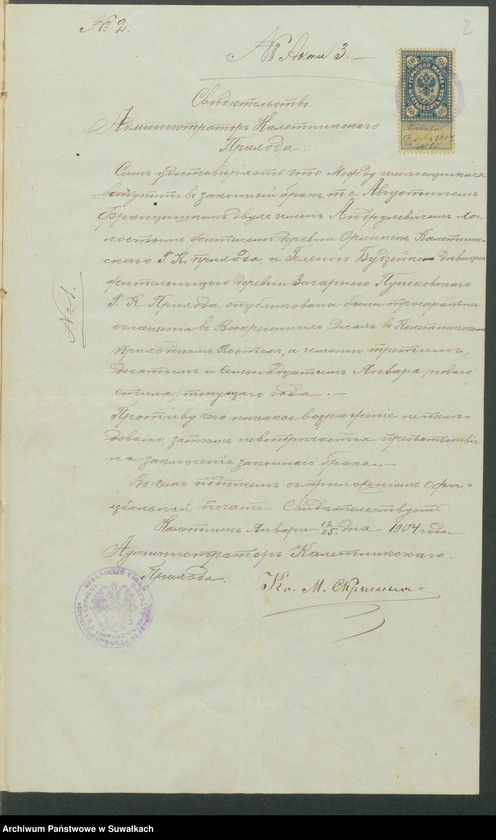 № 2.
2
№ Акта 3.
Свидетельство
Администраторъ Калетникскаго
Прихода.
Симъ удостоверяетъ что между имеющимися
вступить въ законный бракъ т. е. Августиномъ
Францишкомъ двухъ именъ Андрулевичемъ хо-
лостымъ жителемъ деревни Калетник-
скаго Р. К. прихода и Геленою девицею
жительницею деревни Пунсковскаго
Р. К. Прихода, опубликованы были троекратныя
оглашения въ Воскресные дни въ Калетникскомъ
приходскомъ Костеле, а именно третьимъ,
десятымъ и семнадцатымъ Января /новаго
стиля/ текущаго года. —
Противу чего никакое возражение не после-
довало, затемъ не встречается препятствия
на заключение законнаго брака. —
Въ чемъ подписомъ съ приложениемъ офи-
циальной печати Свидетельствуетъ
Калетникъ Января 12/25 дня 1904 года
Администраторъ Калетникскаго
Прихода.
Кс. М.
№ 1.
60
60
1904
Archiwum Państwowe w Suwałkach
Archiwum Państwowe w Suwałkach